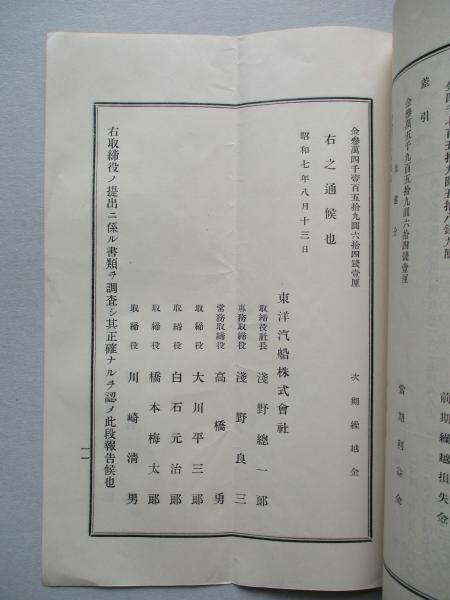 差引
金參萬五千九百五拾九圓六拾四錢壹厘
當期利益金
前期繰越損失金
金參萬四千壹百五拾九圓六拾四錢壹厘 次期繰越金
右之通候也
昭和七年八月十三日
東洋汽船株式會社
取締役社長 淺野總一郞
專務取締役 淺野良三
常務取締役 高橋勇
取締役 大川平三郞
取締役 白石元治郞
取締役 橋本梅太郞
取締役 川崎淸男
右取締役ノ提出ニ係ル書類ヲ調査シ其正確ナルヲ認メ此段報告候也
一一